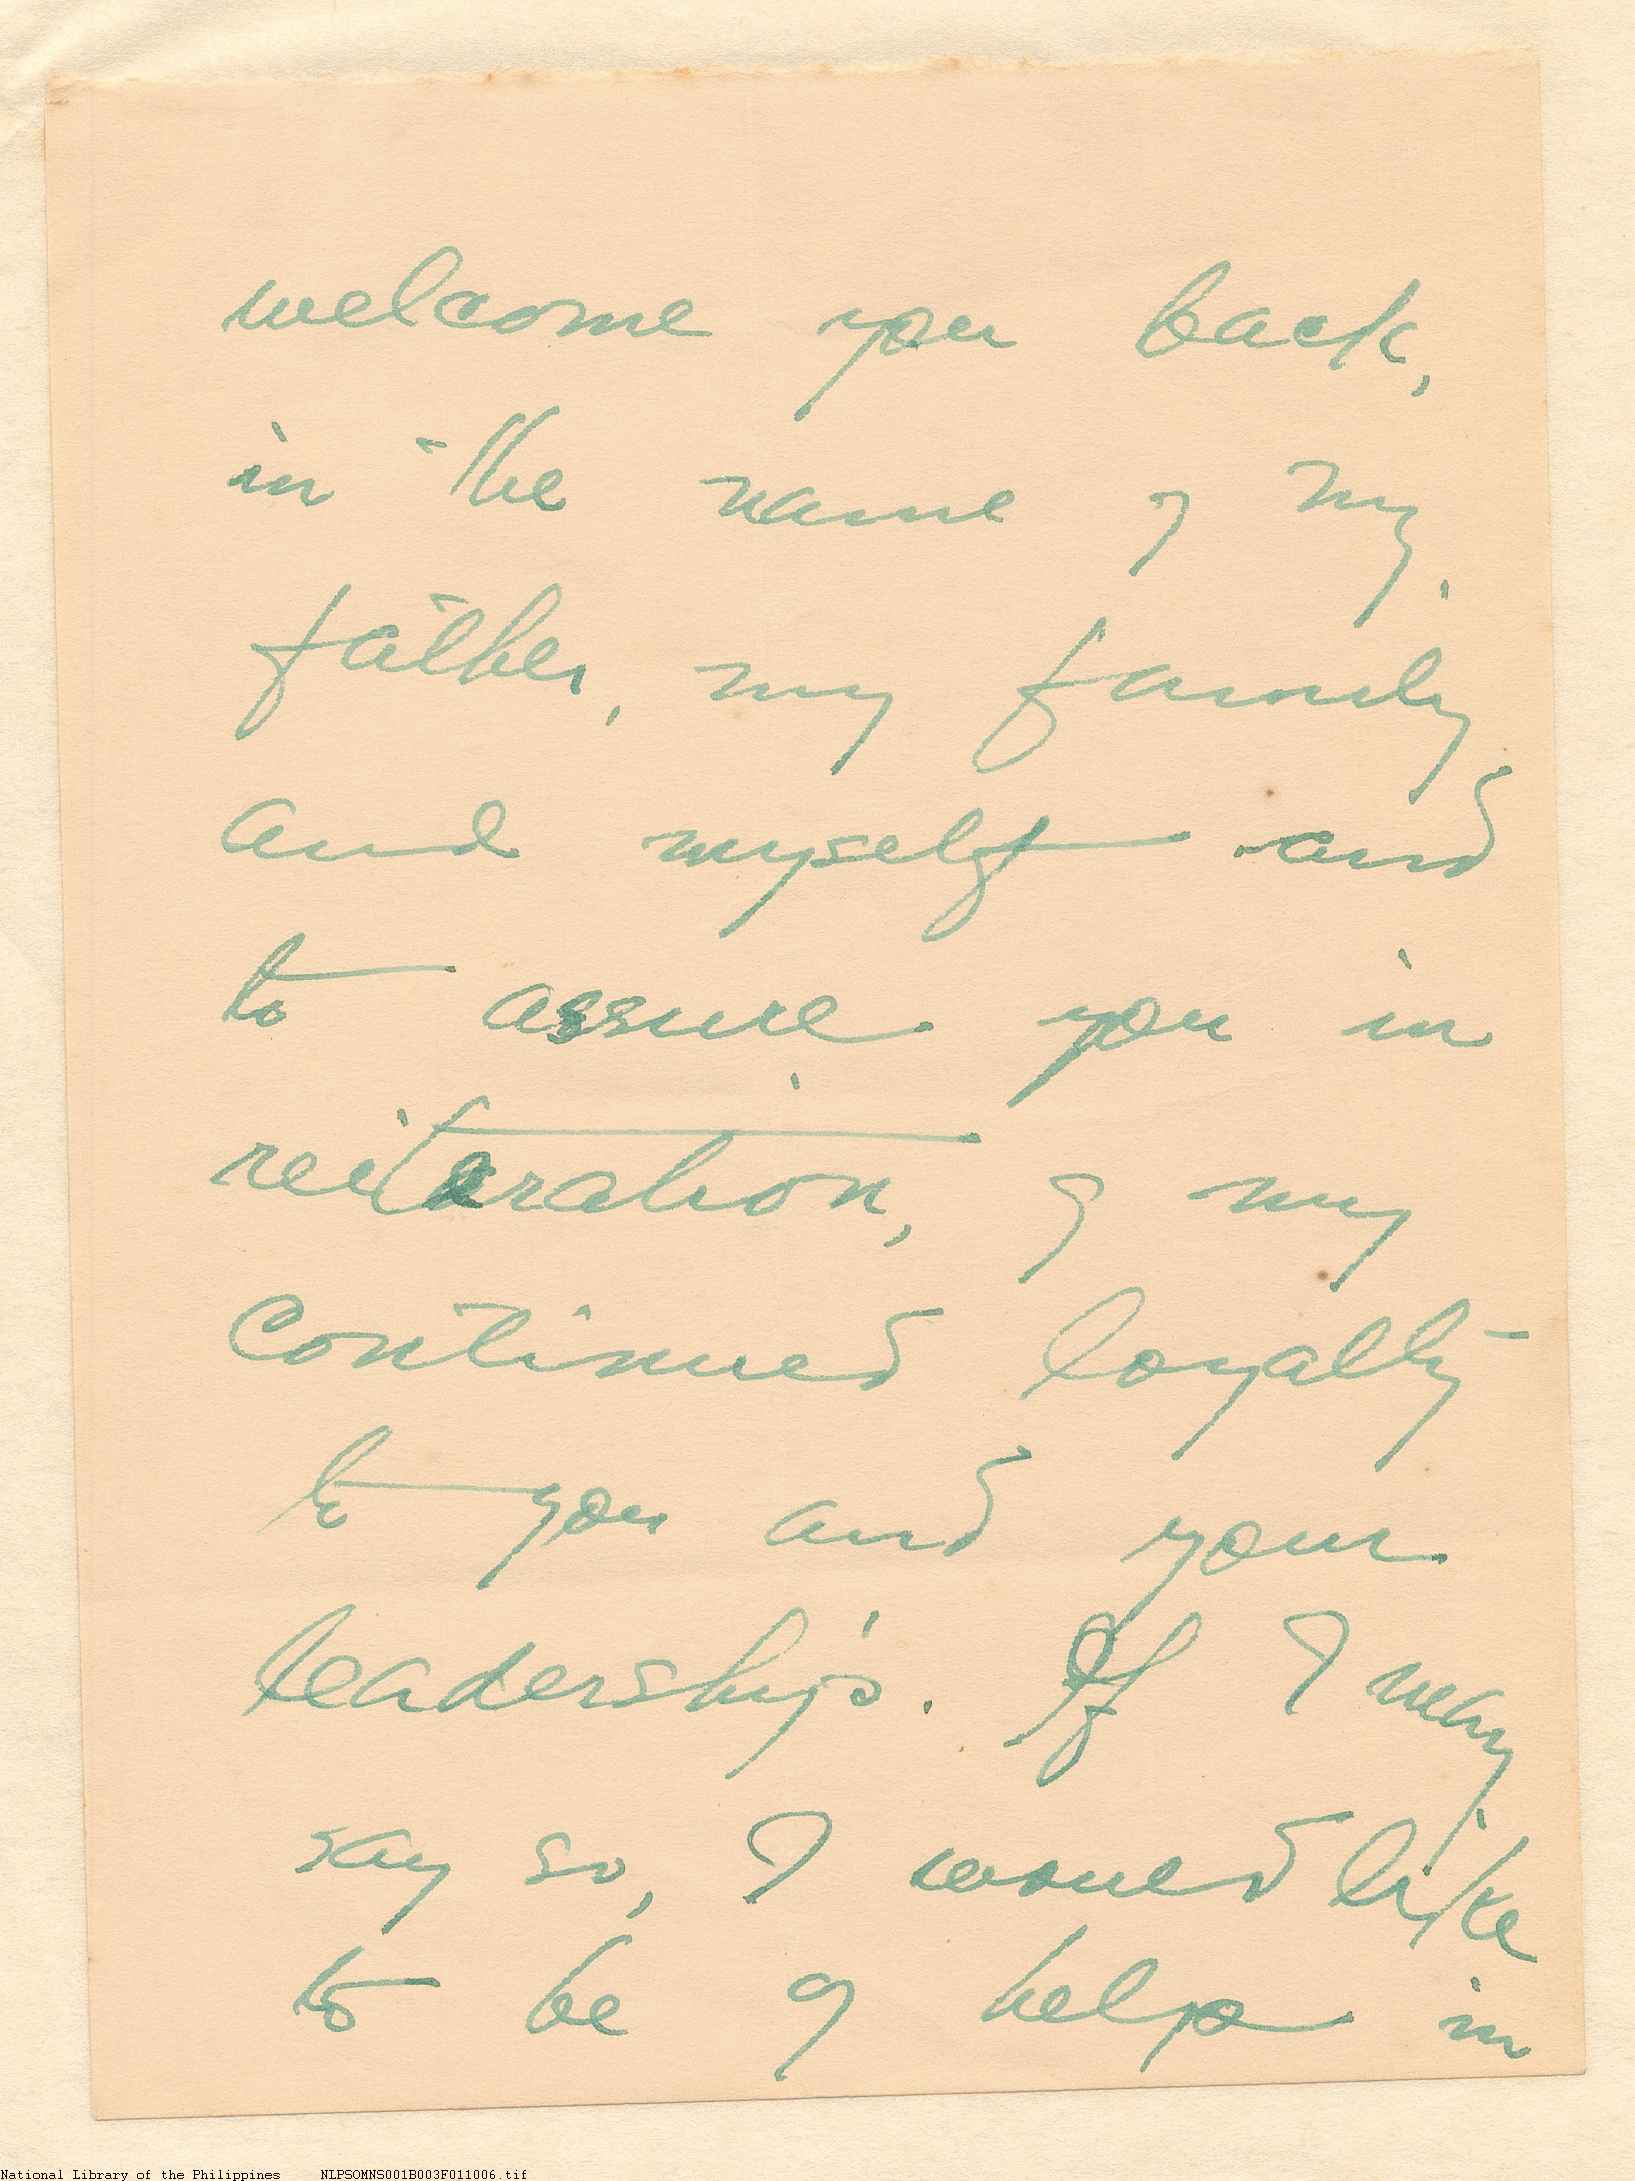 welcome you back,
in the name of my
father, my family
and myself and
to assure you in
reiteration, of my
continued loyalty
to you and your
leadership. If I may
say so, I would like
to be of help in
National Library of the Philippines NLPSOMNS001B003F011006.tif